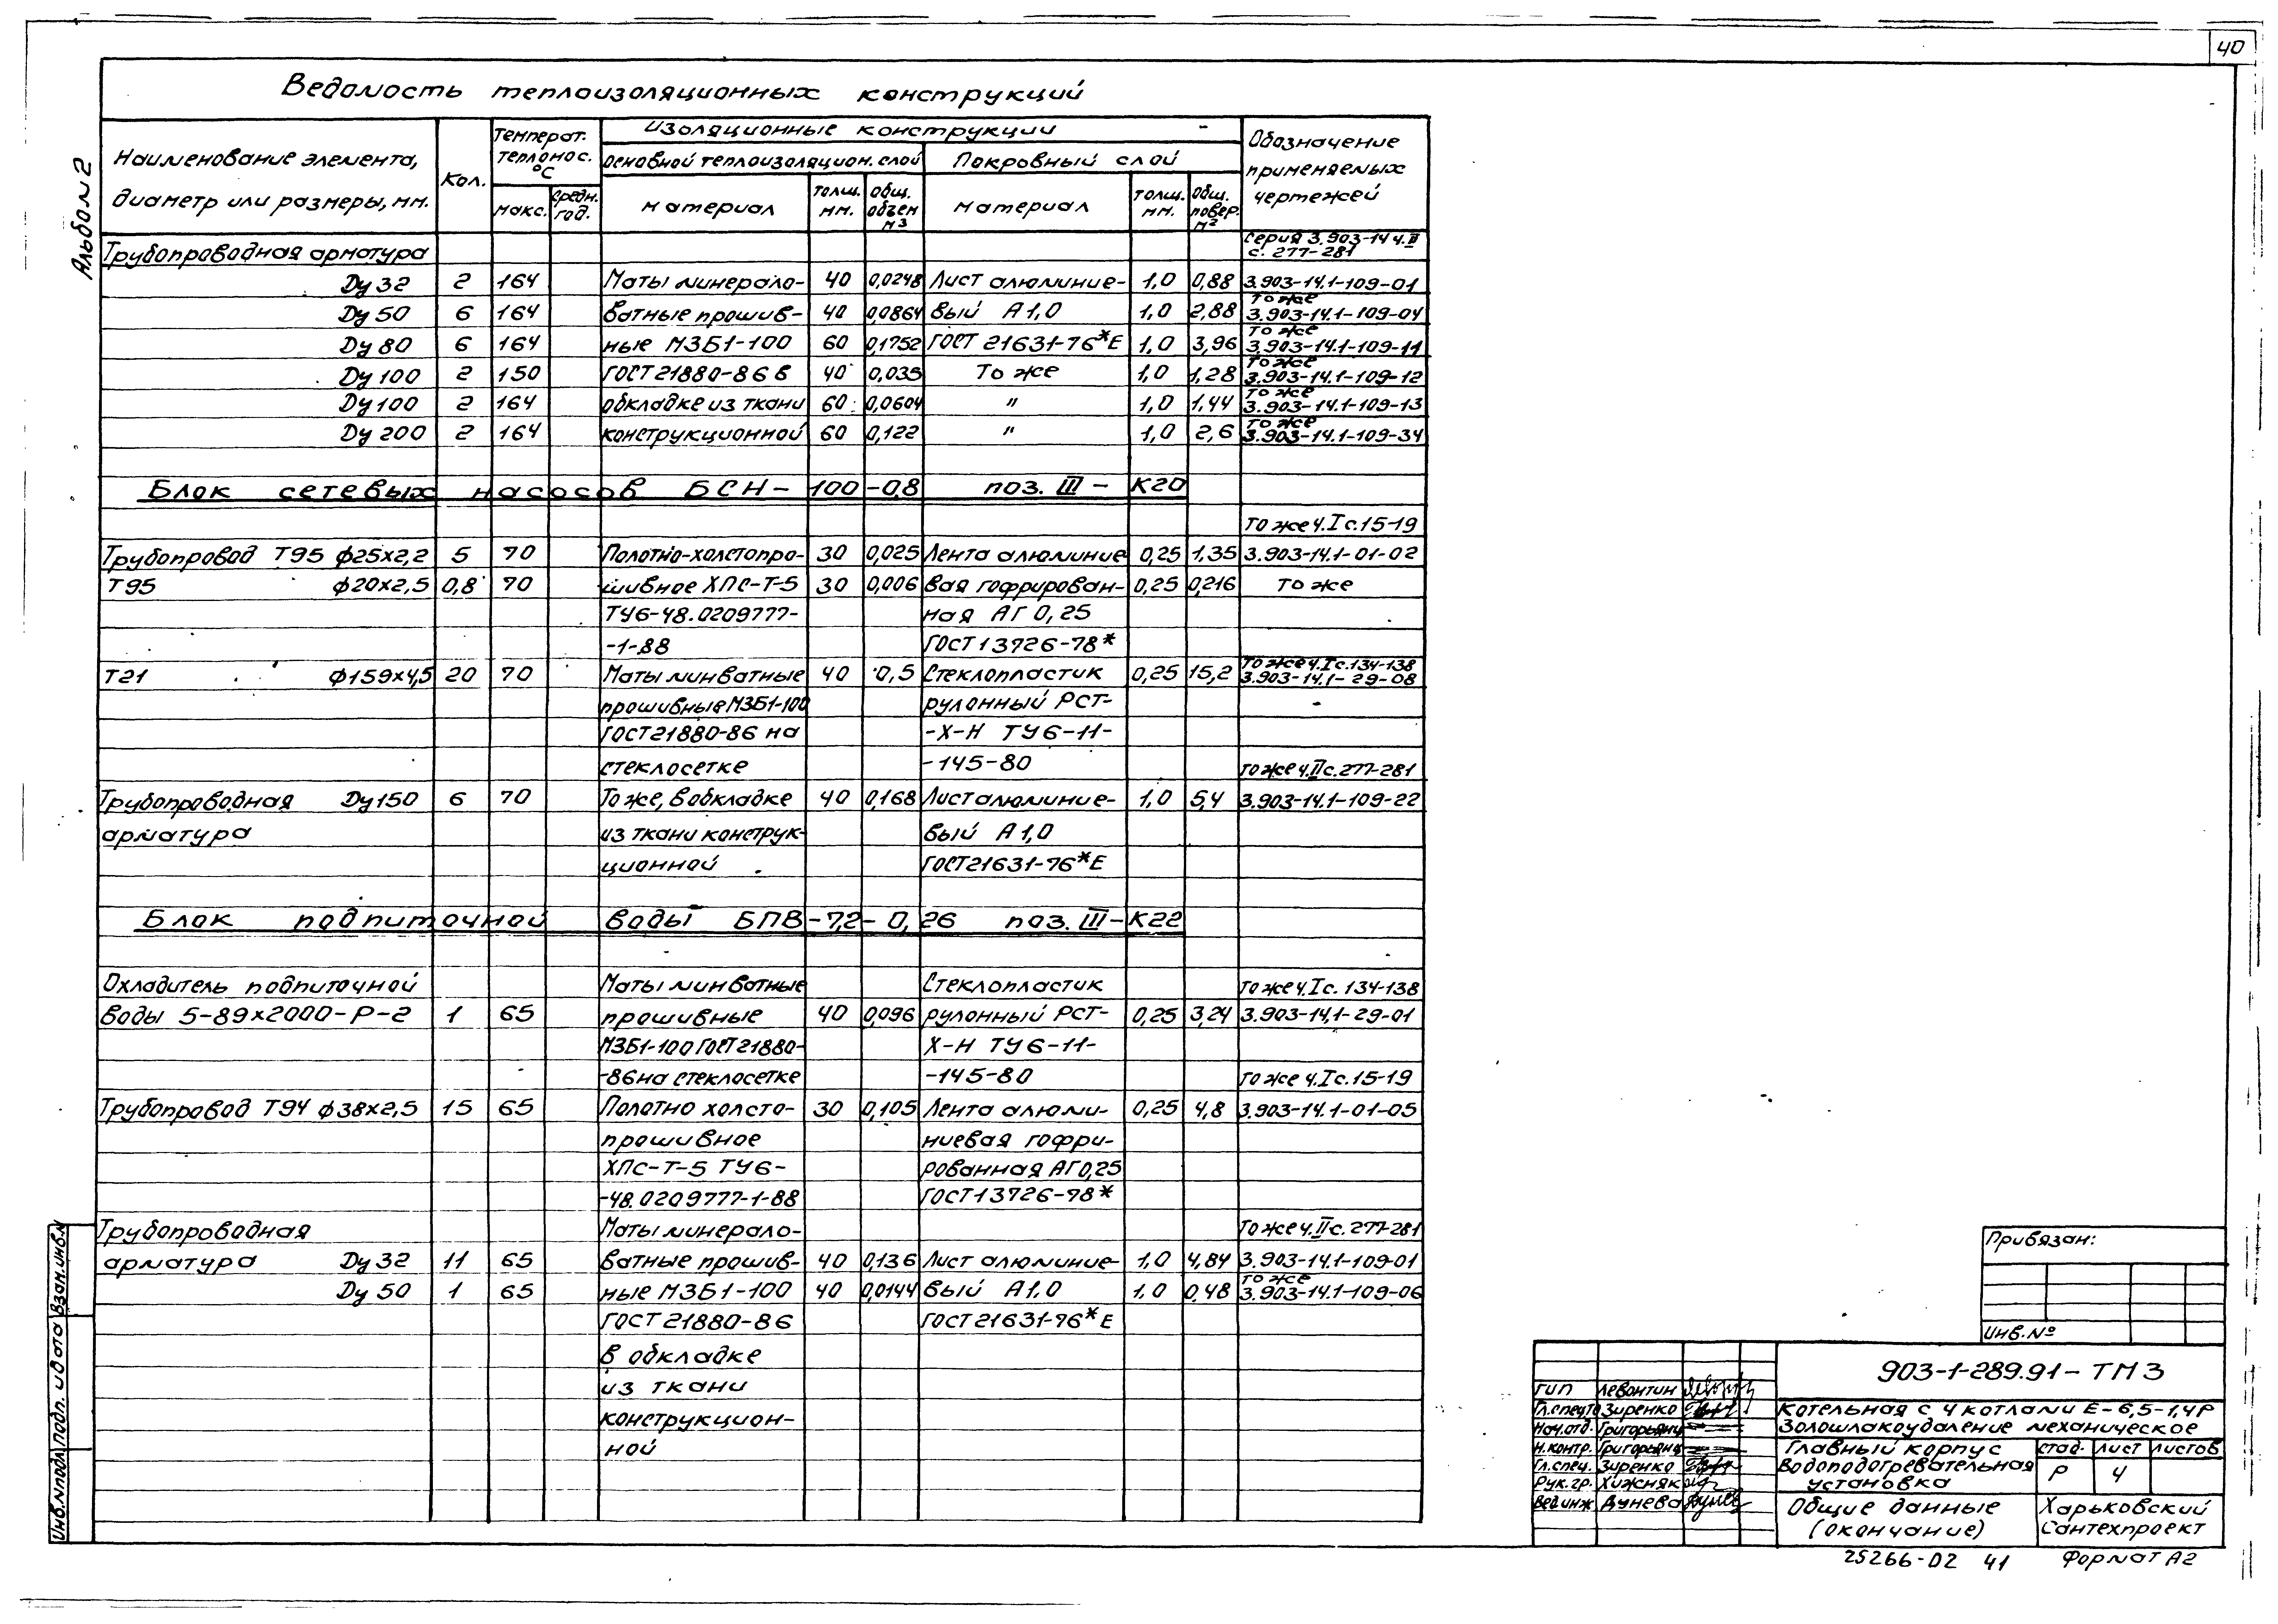 40
Альбом 2
Ведомость теплоизоляционных конструкций
Наименование элемента, диаметр или размеры, мм.
Кол.
Температ. теплонос. °С
макс.
средн. год.
Изоляционные конструкции
основной теплоизоляцион. слой
Покровный слой
материал
толщ. мм.
общ. объем м3
материал
толщ. мм.
общ. повер. м2
Обозначение применяемых чертежей
Трубопроводная арматура Серия 3.903-14 ч.II
с. 277-281
Ду 32 2 164 Маты минерало- 40 0,0248 Лист алюминие- 1,0 0,88 3.903-14.1-109-01
то же
Ду 50 6 164 ватные прошив- 40 0,0864 вый А1,0 1,0 2,88 3.903-14.1-109-04
то же
Ду 80 6 164 ные МЗБ1-100 60 0,1752 ГОСТ 21631-76*Е 1,0 3,96 3.903-14.1-109-11
то же
Ду 100 2 150 ГОСТ 21880-86 в 40 0,035 То же 1,0 1,28 3.903-14.1-109-12
то же
Ду 100 2 164 обкладке из ткани 60 0,0604 " 1,0 1,44 3.903-14.1-109-13
то же
Ду 200 2 164 конструкционной 60 0,122 " 1,0 2,6 3.903-14.1-109-34
Блок сетевых насосов БСН-100-0,8 поз. III-К20
То же ч.I с.15-19
Трубопровод Т95 ф25х2,2 5 70 Полотно-холстопро- 30 0,025 Лента алюминие 0,25 1,35 3.903-14.1-01-02
Т95 ф20х2,5 0,8 70 шивное ХПС-Т-5 30 0,006 вая гофрирован- 0,25 0,216 то же
ТУ6-48.0209777- ная АГ 0,25
-1-88 ГОСТ 13726-78*
То же ч.I с.134-138
Т21 ф159х4,5 20 70 Маты минватные 40 0,5 Стеклопластик 0,25 15,2 3.903-14.1-29-08
прошивные МЗБ1-100 рулонный РСТ-
ГОСТ 21880-86 на -Х-Н ТУ6-11-
стеклосетке -145-80 то же ч.II с.277-281
Трубопроводная Ду 150 6 70 То же, в обкладке 40 0,168 Лист алюминие- 1,0 5,4 3.903-14.1-109-22
арматура из ткани конструк- вый А1,0
ционной ГОСТ 21631-76*Е
Блок подпиточной воды БПВ-7,2-0,26 поз. III-К22
Охладитель подпиточной Маты минватные Стеклопластик то же ч.I с. 134-138
воды 5-89х2000-Р-2 1 65 прошивные 40 0,096 рулонный РСТ- 0,25 3,24 3.903-14.1-29-01
МЗБ1-100 ГОСТ 21880- Х-Н ТУ6-11-
-86 на стеклосетке -145-80 то же ч.I с.15-19
Трубопровод Т94 ф38х2,5 15 65 Полотно холсто- 30 0,105 Лента алюми- 0,25 4,8 3.903-14.1-01-05
прошивное ниевая гофри-
ХПС-Т-5 ТУ6- рованная АГ 0,25
-48.0209777-1-88 ГОСТ 13726-78*
Трубопроводная Маты минерало- То же ч.II с.277-281
арматура Ду 32 11 65 ватные прошив- 40 0,136 Лист алюминие- 1,0 4,84 3.903-14.1-109-01
то же
Ду 50 1 65 ные МЗБ1-100 40 0,0144 вый А1,0 1,0 0,48 3.903-14.1-109-06
ГОСТ 21880-86 ГОСТ 21631-76*Е
в обкладке
из ткани
конструкцион-
ной
Инв.№подл. Подп. и дата Взам.инв.№
Привязан:
Инв.№
903-1-289.91-ТМ3
Котельная с 4 котлами Е-6,5-1,4Р
Золошлакоудаление механическое
Главный корпус
Водоподогревательная
установка
стад. лист листов
Р 4
Общие данные
(окончание)
Харьковский
Сантехпроект
ГИП Левонтин
Гл.спецТО Зиренко
Нач.отд. Григорьянц
Н.контр. Григорьянц
Гл.спец. Зиренко
Рук.гр. Хижняк
Вед.инж Дунева
25266-02 41 Формат А2